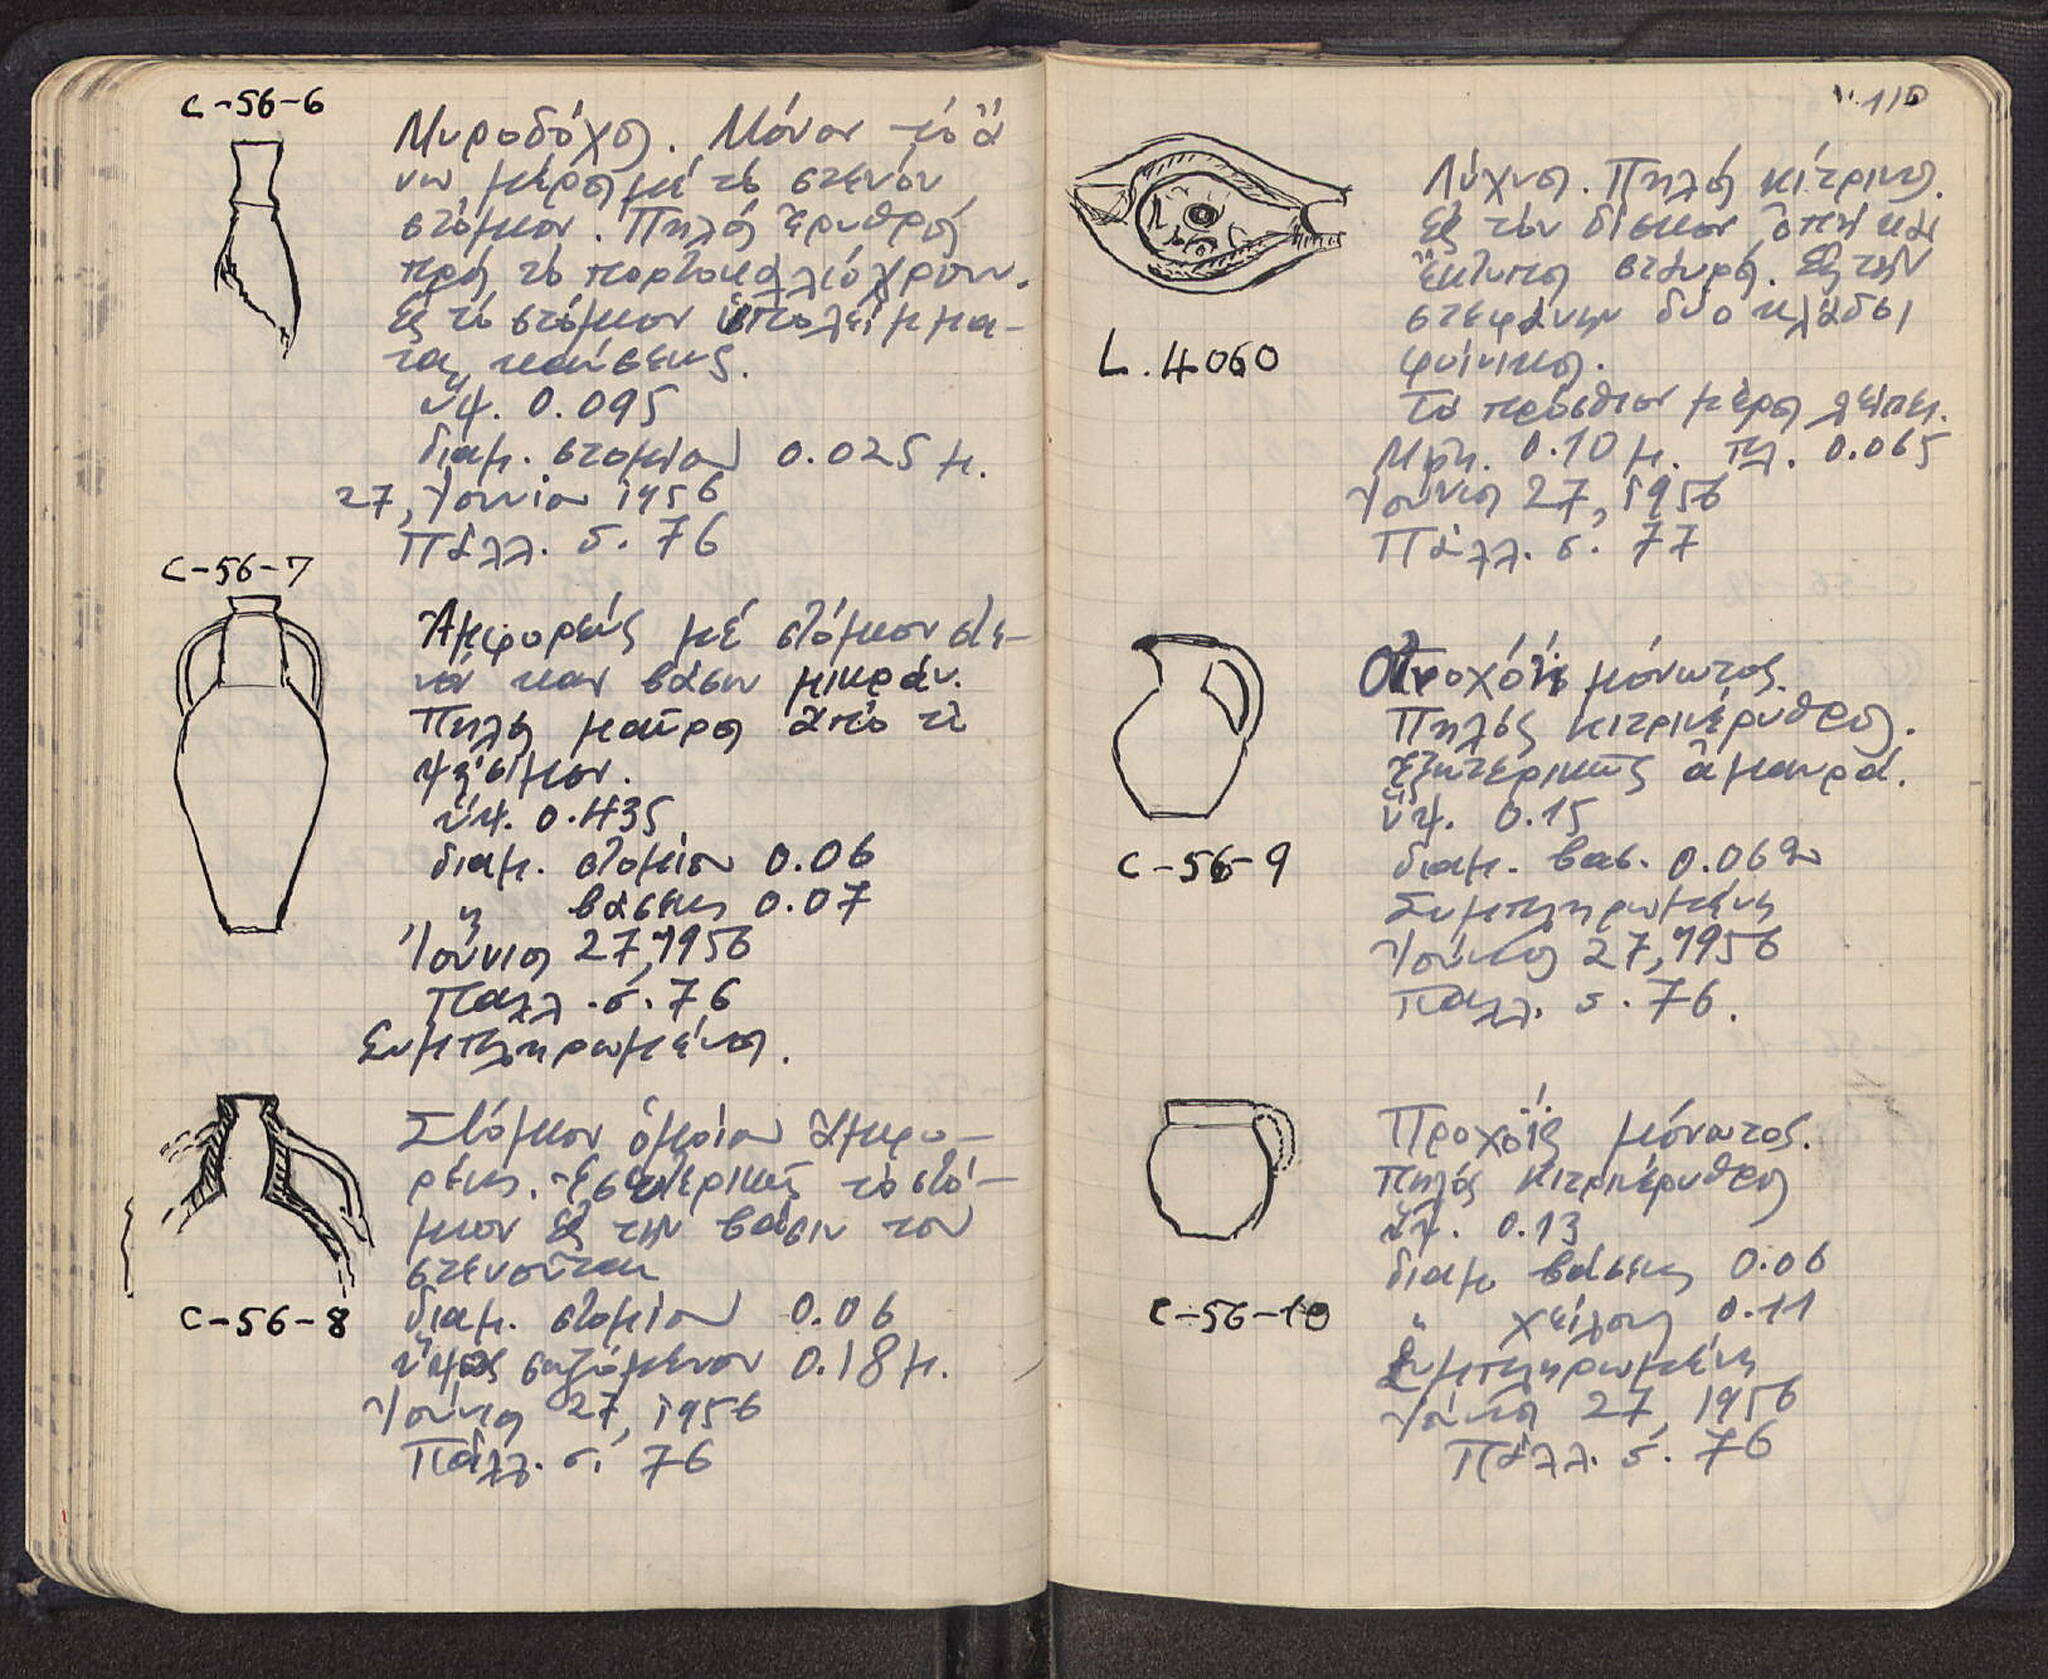 C-56-6
Μυροδόχος. Μόνον τὸ ἄ
νω μέρος μὲ τὸ στενὸν
στόμιον. Πηλὸς ἐρυθρὸς
πρὸς τὸ πορτοκαλλιόχρουν.
Εἰς τὸ στόμιον ὑπολείμμα-
τα καύσεως.
ὕψ. 0.095
διαμ. στομίου 0.025 μ.
27, Ἰουνίου 1956
Πάλλ. σ. 76
C-56-7
Ἀμφορεὺς μὲ στόμιον στε-
νὸ καὶ βάσιν μικράν.
Πηλὸς μαῦρος ἀπὸ τὸ
ψήσιμον.
ὕψ. 0.435
διαμ. στομίου 0.06
" βάσεως 0.07
Ἰούνιος 27, 1956
Πάλλ. σ. 76
Συμπληρωμένος.
Στόμιον ὁμοίου ἀμφο-
ρέως. Ἐσωτερικῶς τὸ στό-
μιον εἰς τὴν βάσιν του
στενοῦται
C-56-8
διαμ. στομίου 0.06
ὕψος σωζόμενον 0.18 μ.
Ἰούνιος 27, 1956
Πάλλ. σ. 76
110
Λύχνος. Πηλὸς κίτρινος.
Εἰς τὸν δίσκον ὀπὴ καὶ
ἔκτυπος σταυρός. Εἰς τὴν
στεφάνην δύο κλάδοι
φοίνικος.
L.4060
Τὸ πρόσθιον μέρος λείπει.
Μῆκ. 0.10 μ. πλ. 0.065
Ἰούνιος 27, 1956
Πάλλ. σ. 77
Προχόϊς μόνωτος.
Πηλὸς κιτρινέρυθρος.
Ἐξωτερικῶς ἀμαυρά.
ὕψ. 0.15
C-56-9
διαμ. βασ. 0.062
Συμπληρωμένη
Ἰούνιος 27, 1956
Πάλλ. σ. 76.
Προχοΐς μόνωτος.
Πηλὸς κιτρινέρυθρος
ὕψ. 0.13
διαμ. βάσεως 0.06
C-56-10
" χείλους 0.11
Συμπληρωμένη
Ἰούνιος 27, 1956
Πάλλ. σ. 76